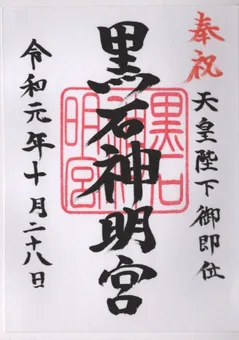 奉祝
天皇陛下御即位
黒石神明宮
黒石
神明宮
令和元年十月二十八日